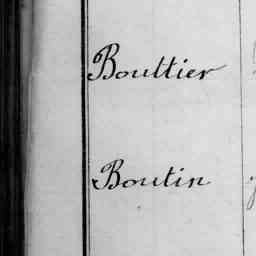 Bouttier
Boutin